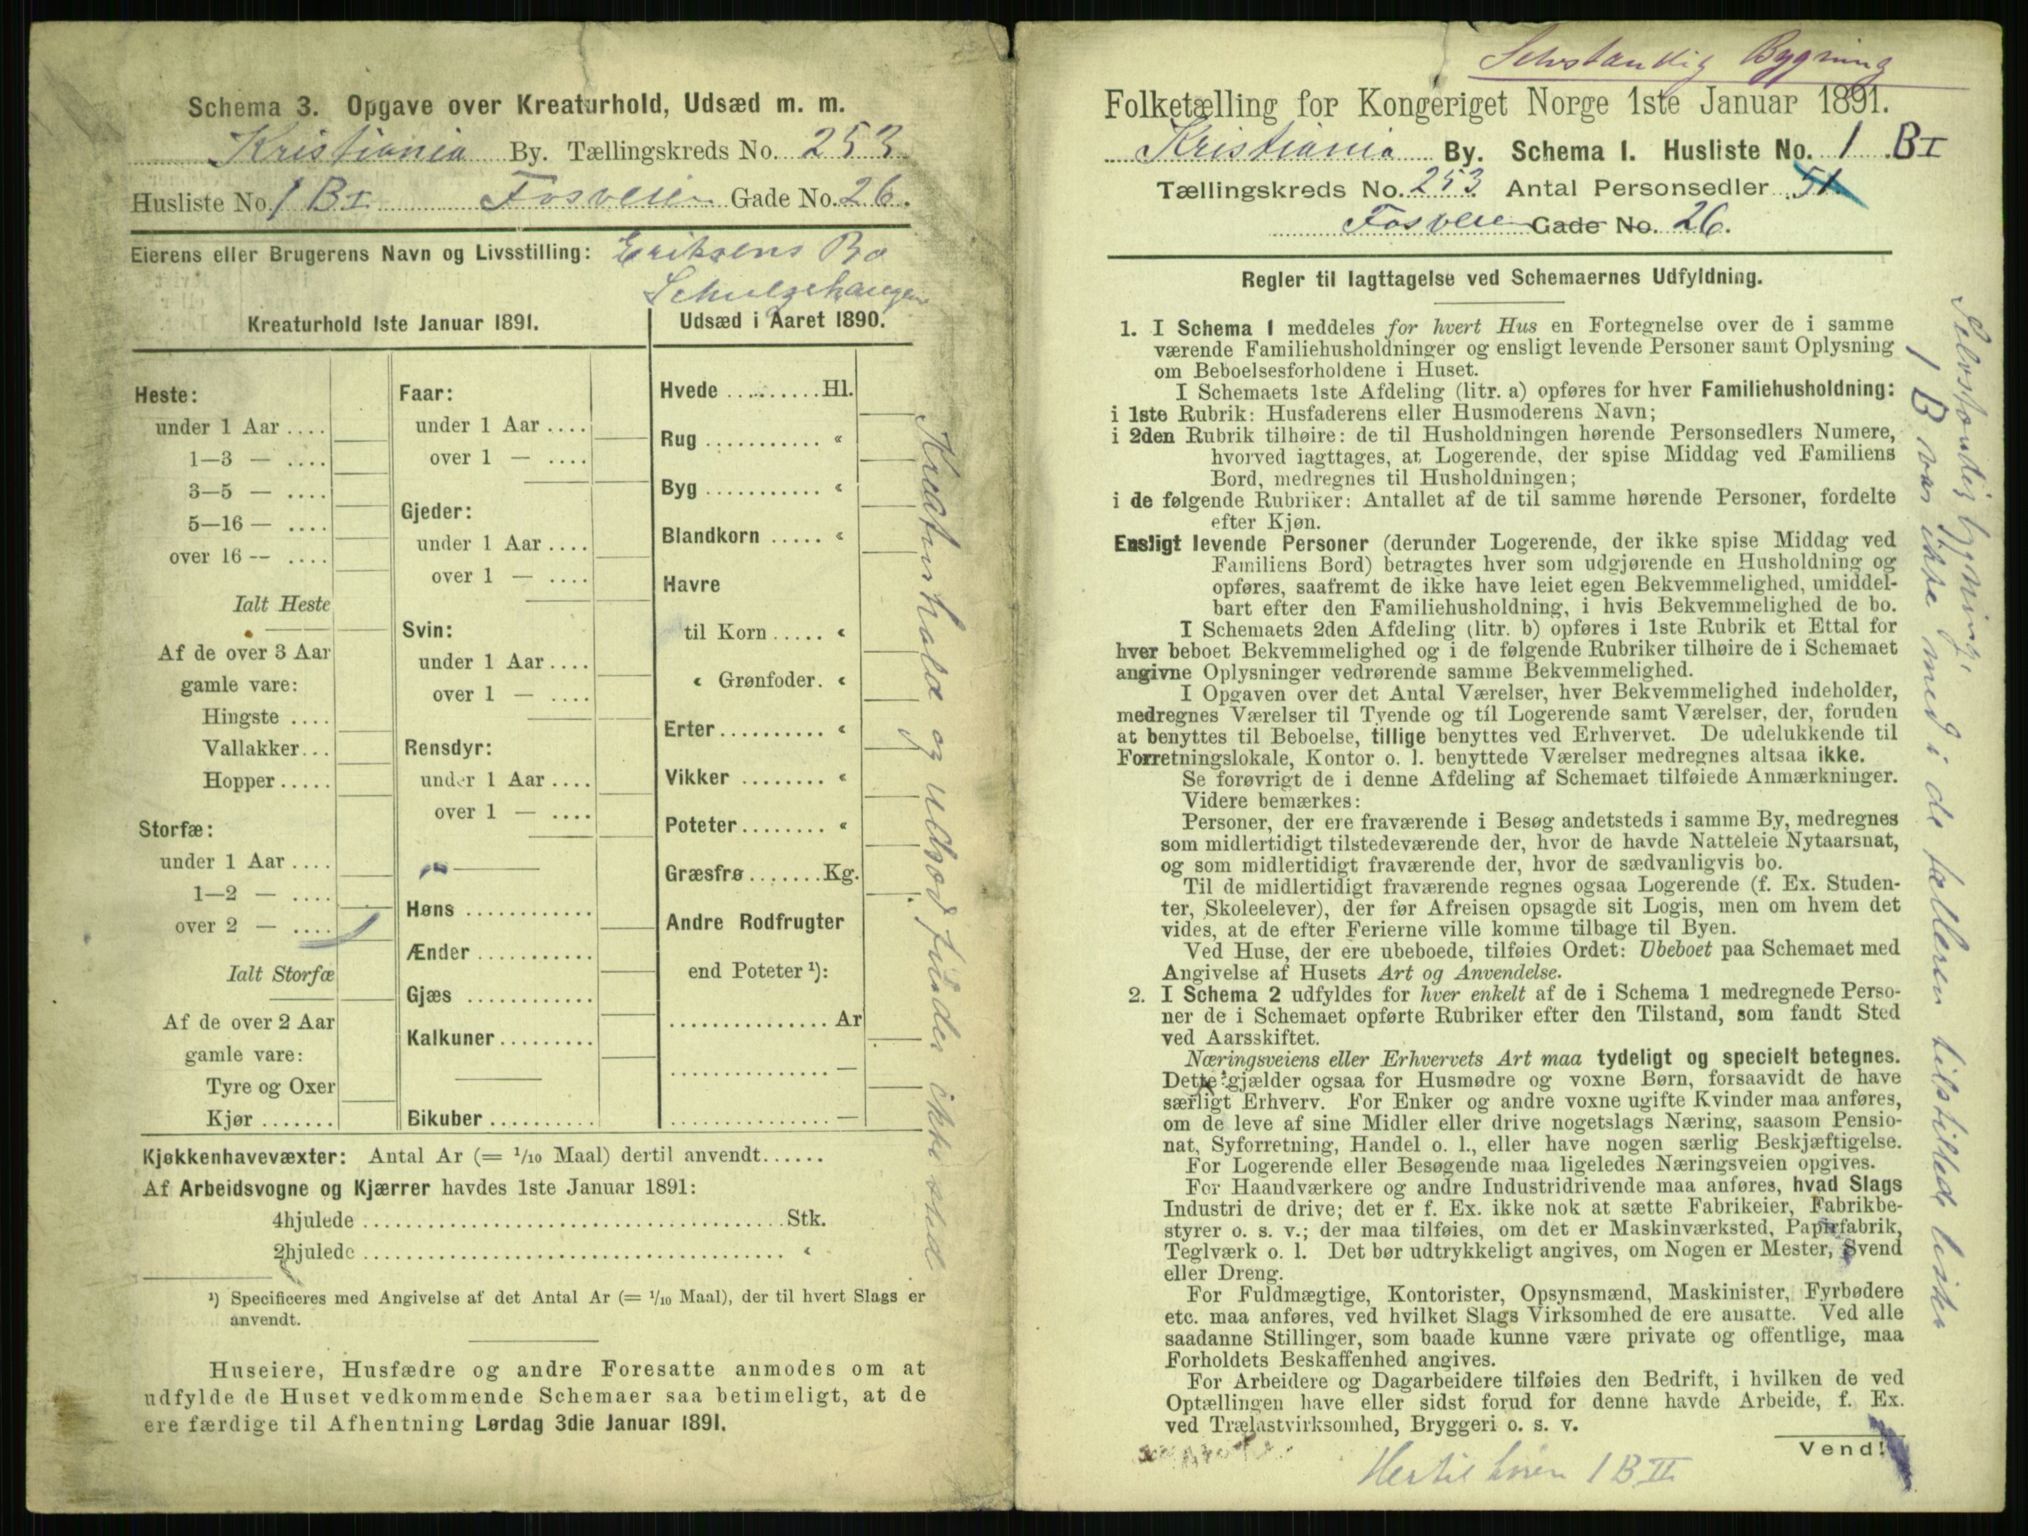 Schema 3. Opgave over Kreaturhold, Udsæd m. m.
Kristiania By. Tællingskreds No. 253
Husliste No. 1 BI Fosveien Gade No. 26.
Eierens eller Brugerens Navn og Livsstilling: Eriksens Bo
Schulzehaugen
Kreaturhold 1ste Januar 1891.
Udsæd i Aaret 1890.
Heste:
under 1 Aar ....
1—3 — ....
3—5 — ....
5—16 — ....
over 16 -- ....
Ialt Heste
Af de over 3 Aar
gamle vare:
Hingste ....
Vallakker...
Hopper.....
Storfæ:
under 1 Aar ....
1—2 — ....
over 2 — ....
Ialt Storfæ
Af de over 2 Aar
gamle vare:
Tyre og Oxer
Kjør .......
Faar:
under 1 Aar ....
over 1 — ....
Gjeder:
under 1 Aar ....
over 1 — ....
Svin:
under 1 Aar ....
over 1 — ....
Rensdyr:
under 1 Aar ....
over 1 — ....
Høns ............
Ænder ...........
Gjæs ............
Kalkuner.........
Bikuber ..........
Hvede .........Hl.
Rug ........... «
Byg ........... «
Blandkorn ..... «
Havre
til Korn ..... «
« Grønfoder. «
Erter.......... «
Vikker ........ «
Poteter........ «
Græsfrø .......Kg.
Andre Rodfrugter
end Poteter ¹):
............... Ar
............... —
............... —
Kreaturhold og Udsæd finder ikke sted
Kjøkkenhavevæxter: Antal Ar (= 1/10 Maal) dertil anvendt......
Af Arbeidsvogne og Kjærrer havdes 1ste Januar 1891:
4hjulede ........................................Stk.
2hjulede ........................................ «
¹) Specificeres med Angivelse af det Antal Ar (= 1/10 Maal), der til hvert Slags er
anvendt.
Huseiere, Husfædre og andre Foresatte anmodes om at
udfylde de Huset vedkommende Schemaer saa betimeligt, at de
ere færdige til Afhentning Lørdag 3die Januar 1891.
Selvstændig Bygning
Folketælling for Kongeriget Norge 1ste Januar 1891.
Kristiania By. Schema I. Husliste No. 1 BI
Tællingskreds No. 253 Antal Personsedler 51
Fosveien Gade No. 26.
Regler til Iagttagelse ved Schemaernes Udfyldning.
1. I Schema 1 meddeles for hvert Hus en Fortegnelse over de i samme
værende Familiehusholdninger og ensligt levende Personer samt Oplysning
om Beboelsesforholdene i Huset.
I Schemaets 1ste Afdeling (litr. a) opføres for hver Familiehusholdning:
i 1ste Rubrik: Husfaderens eller Husmoderens Navn;
i 2den Rubrik tilhøire: de til Husholdningen hørende Personsedlers Numere,
hvorved iagttages, at Logerende, der spise Middag ved Familiens
Bord, medregnes til Husholdningen;
i de følgende Rubriker: Antallet af de til samme hørende Personer, fordelte
efter Kjøn.
Ensligt levende Personer (derunder Logerende, der ikke spise Middag ved
Familiens Bord) betragtes hver som udgjørende en Husholdning og
opføres, saafremt de ikke have leiet egen Bekvemmelighed, umiddel-
bart efter den Familiehusholdning, i hvis Bekvemmelighed de bo.
I Schemaets 2den Afdeling (litr. b) opføres i 1ste Rubrik et Ettal for
hver beboet Bekvemmelighed og i de følgende Rubriker tilhøire de i Schemaet
angivne Oplysninger vedrørende samme Bekvemmelighed.
I Opgaven over det Antal Værelser, hver Bekvemmelighed indeholder,
medregnes Værelser til Tyende og til Logerende samt Værelser, der, foruden
at benyttes til Beboelse, tillige benyttes ved Erhvervet. De udelukkende til
Forretningslokale, Kontor o. l. benyttede Værelser medregnes altsaa ikke.
Se forøvrigt de i denne Afdeling af Schemaet tilføiede Anmærkninger.
Videre bemærkes:
Personer, der ere fraværende i Besøg andetsteds i samme By, medregnes
som midlertidigt tilstedeværende der, hvor de havde Natteleie Nytaarsnat,
og som midlertidigt fraværende der, hvor de sædvanligvis bo.
Til de midlertidigt fraværende regnes ogsaa Logerende (f. Ex. Studen-
ter, Skoleelever), der før Afreisen opsagde sit Logis, men om hvem det
vides, at de efter Ferierne ville komme tilbage til Byen.
Ved Huse, der ere ubeboede, tilføies Ordet: Ubeboet paa Schemaet med
Angivelse af Husets Art og Anvendelse.
2. I Schema 2 udfyldes for hver enkelt af de i Schema 1 medregnede Perso-
ner de i Schemaet opførte Rubriker efter den Tilstand, som fandt Sted
ved Aarsskiftet.
Næringsveiens eller Erhvervets Art maa tydeligt og specielt betegnes.
Dette gjælder ogsaa for Husmødre og voxne Børn, forsaavidt de have
særligt Erhverv. For Enker og andre voxne ugifte Kvinder maa anføres,
om de leve af sine Midler eller drive nogetslags Næring, saasom Pensio-
nat, Syforretning, Handel o. l., eller have nogen særlig Beskjæftigelse.
For Logerende eller Besøgende maa ligeledes Næringsveien opgives.
For Haandværkere og andre Industridrivende maa anføres, hvad Slags
Industri de drive; det er f. Ex. ikke nok at sætte Fabrikeier, Fabrikbe-
styrer o. s. v.; der maa tilføies, om det er Maskinværksted, Papirfabrik,
Teglværk o. l. Det bør udtrykkeligt angives, om Nogen er Mester, Svend
eller Dreng.
For Fuldmægtige, Kontorister, Opsynsmænd, Maskinister, Fyrbødere
etc. maa anføres, ved hvilket Slags Virksomhed de ere ansatte. Ved alle
saadanne Stillinger, som baade kunne være private og offentlige, maa
Forholdets Beskaffenhed angives.
For Arbeidere og Dagarbeidere tilføies den Bedrift, i hvilken de ved
Optællingen have eller sidst forud for denne havde Arbeide, f. Ex.
ved Trælastvirksomhed, Bryggeri o. s. v.
Vend!
Hertil hører 1 B II
Selvstændig bygning,
1 B var ikke med i de tælleren tilstillede lister